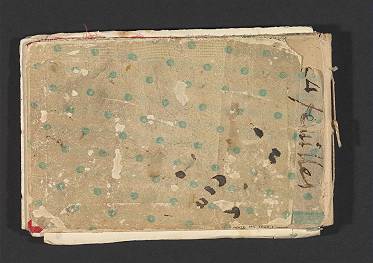 24 feuilles